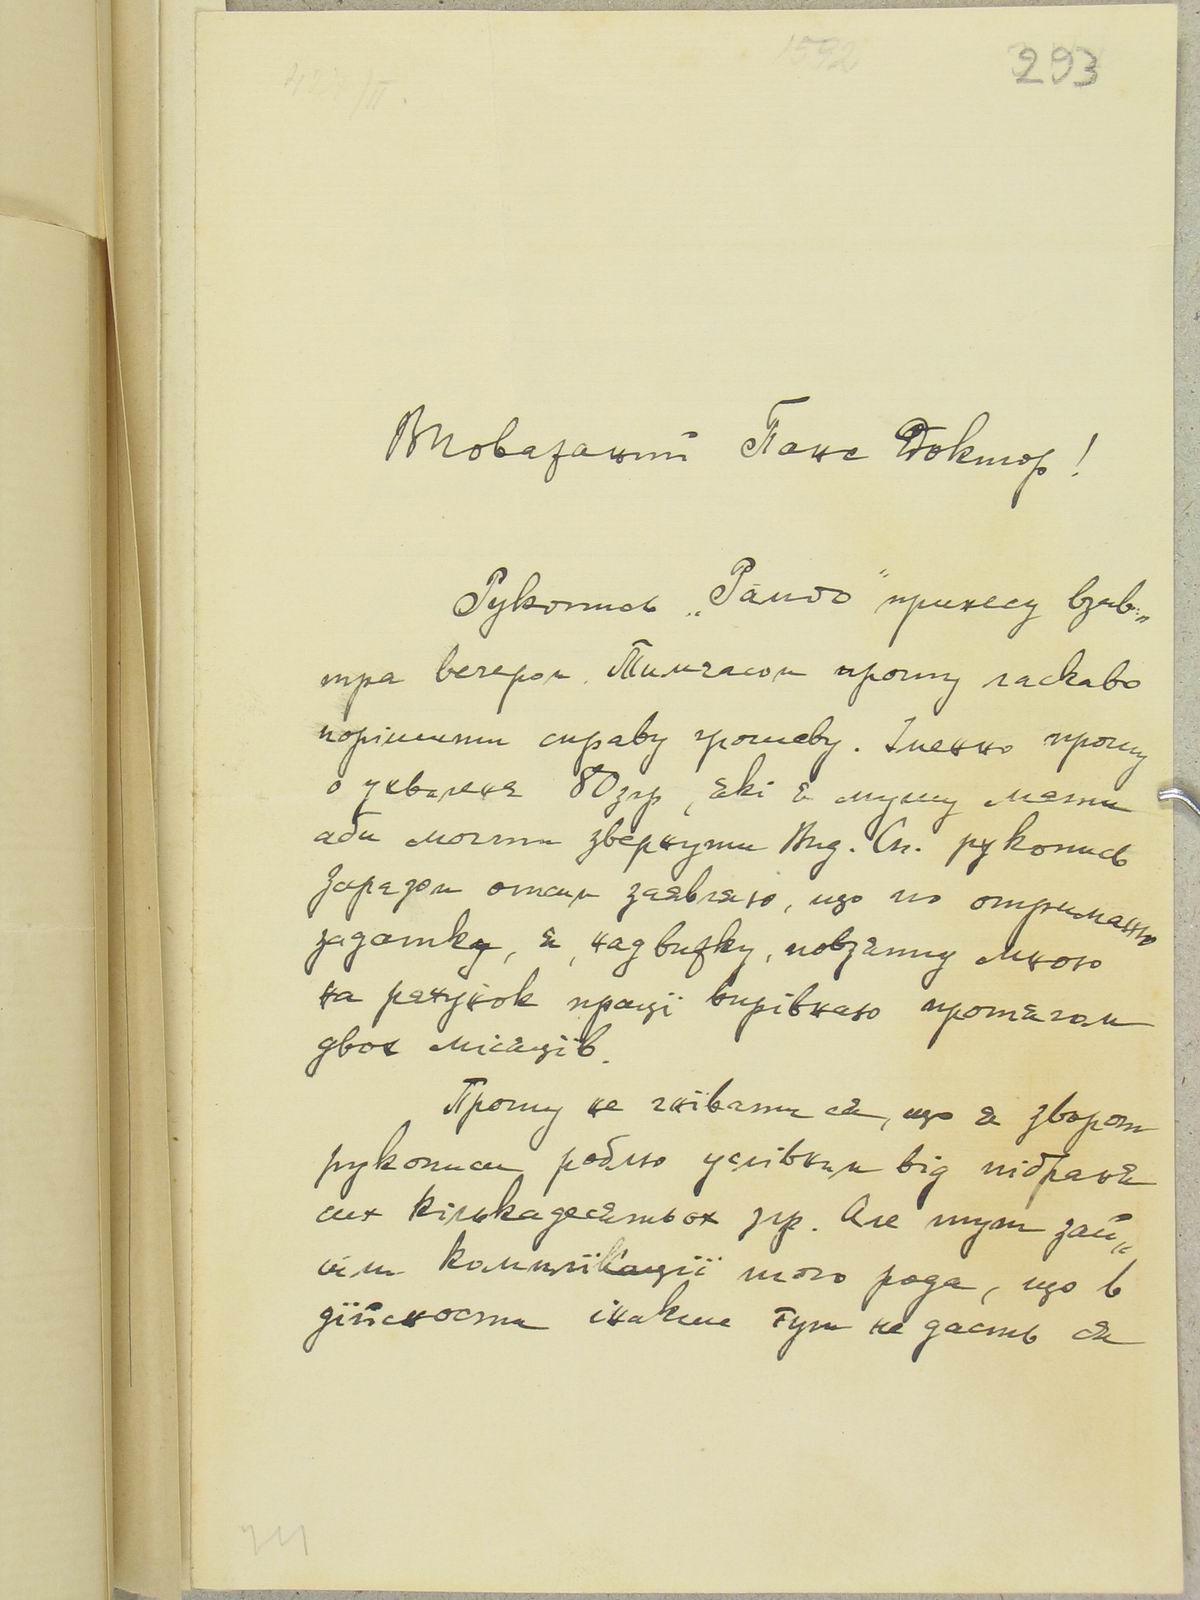 293
1592
ВПоважаний Пане Доктор!
Рукопись „Рамо" принесу взав„
тра вечером. Тимчасом прошу ласкаво
порішити справу грошеву. Іменно прошу
о ухвалене 80 зр, які я мушу мати
аби могти звернути Вид. Сп. рукопись
Заразом отсим заявляю, що по отриманю
задатку, я, надвижку, повзятту мною
на рахунок праці вирівнаю протягом
двох місяців.
Прошу не гнівати ся, що я зворот
рукописи роблю услівним від підраня
сих кількадесятьох зр. Але тут зай„
шли комплїкациї того рода, що в
дїйсности інакше тут не дасть ся